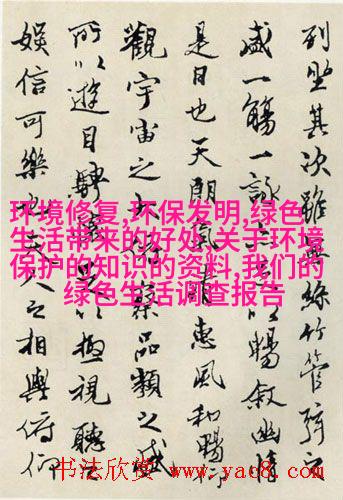 列坐其次雖無絲竹管弦之
盛一觴一詠亦足以暢敘幽情
是日也天朗氣清惠風和暢仰
觀宇宙之大俯察品類之盛
所以遊目騁懷足以極視聽之
娛信可樂也夫人之相與俯仰
环境修复,环保发明,绿色
生活带来的好处,关于环境
保护的知识的资料,我们的
绿色生活调查报告
书法欣赏 www.yac8.com